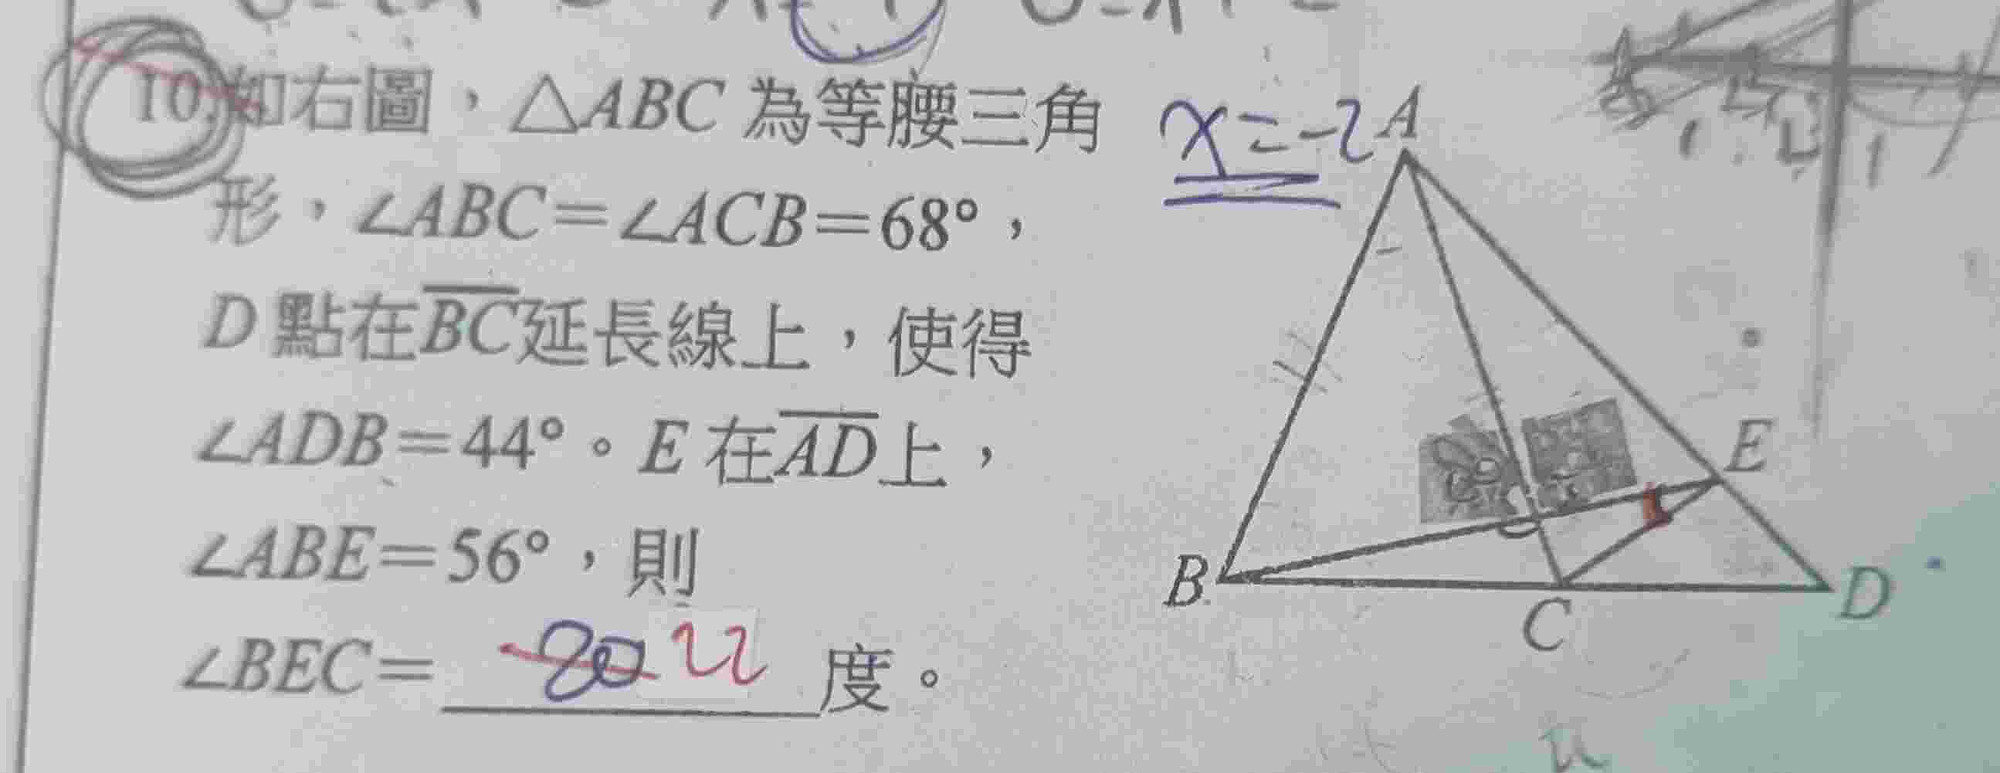 10.如右圖，△ABC 為等腰三角
形，∠ABC＝∠ACB＝68°，
D 點在BC延長線上，使得
∠ADB＝44°。E 在AD上，
∠ABE＝56°，則
∠BEC＝ 80 22 度。
x=-2
A
E
B
C
D